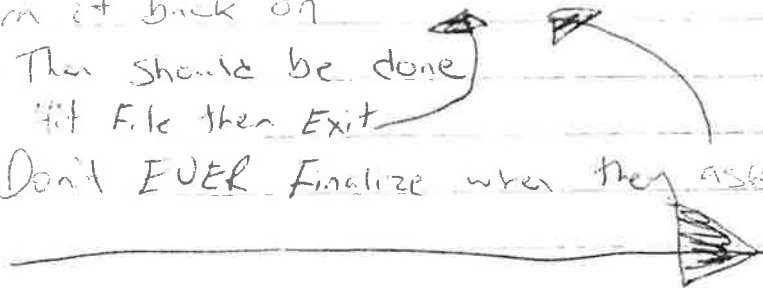 it back on
Then should be done
Hit File then Exit
Don't EVER Finalize when they ask